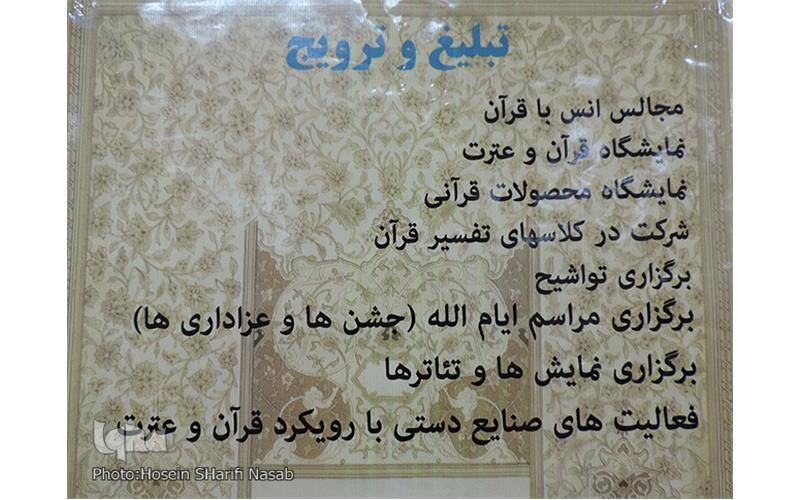 تبلیغ و ترویج
مجالس انس با قرآن
نمایشگاه قرآن و عترت
نمایشگاه محصولات قرآنی
شرکت در کلاسهای تفسیر قرآن
برگزاری تواشیح
برگزاری مراسم ایام الله (جشن ها و عزاداری ها)
برگزاری نمایش ها و تئاترها
فعالیت های صنایع دستی با رویکرد قرآن و عترت
ایکنا
Photo:Hosein SHarifi Nasab